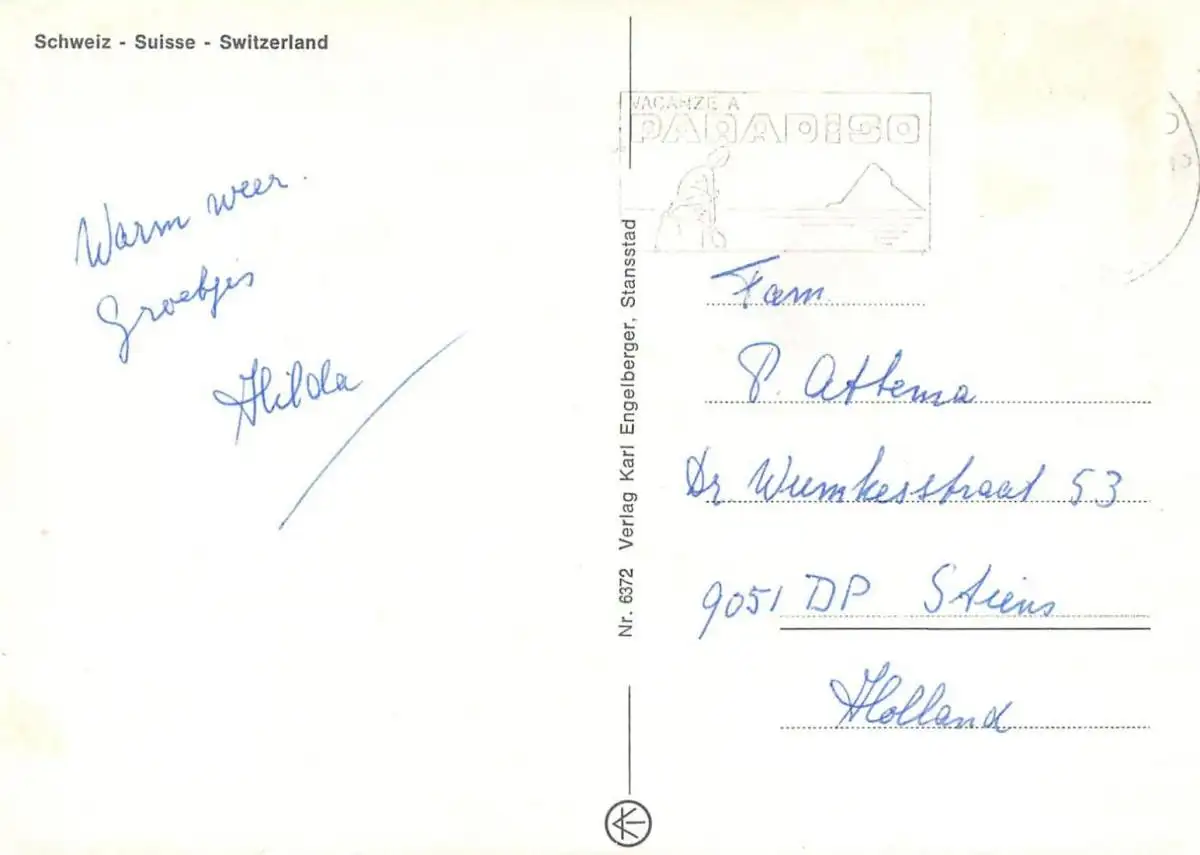 Schweiz - Suisse - Switzerland
Warm weer.
Groetjes
Hilda
Nr. 6372 Verlag Karl Engelberger, Stansstad
VACANZE A
PARADISO
Fam.
P. Attema
Dr. Wumkesstraat 53
9051 DP Stiens
Holland